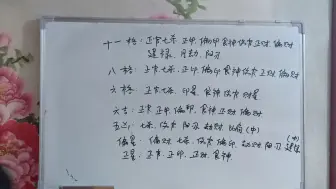 十一格:正官 七杀、正印 偏印 食神 伤官 正财 偏财
建禄、月劫、阳刃
八格:正官 七杀、正印 偏印 食神 伤官 正财 偏财
六格:正官 七杀、印星 食神 伤官 财星
六吉:正官 正印 偏印、食神 正财 偏财
五凶:七杀、伤官 阳刃 劫财 比肩(中)
偏星:偏财 七杀、伤官 偏印、劫财 阳刃 建禄
(中)
正星:正官、正印、正财、食神